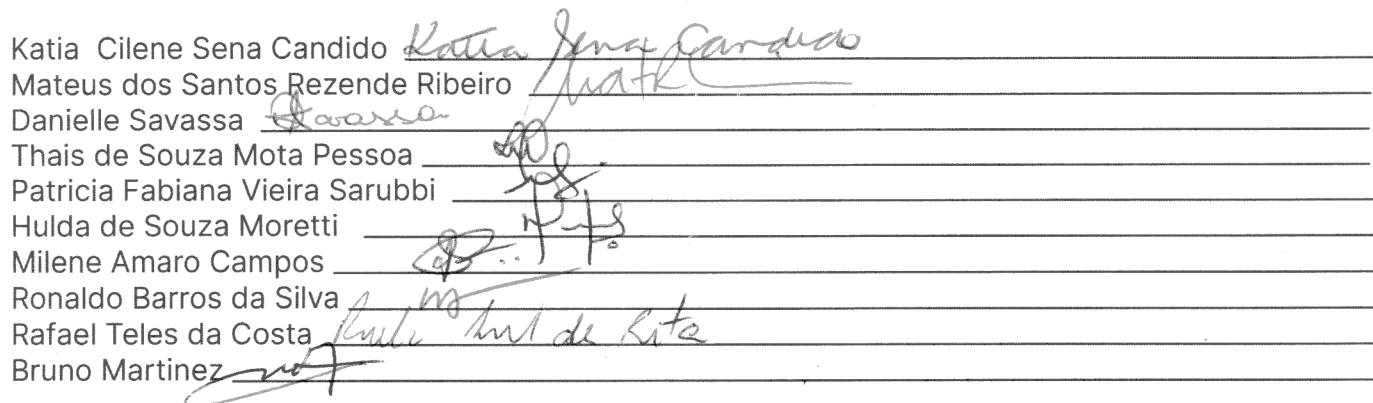 Katia Cilene Sena Candido Katia Sena Candido
Mateus dos Santos Rezende Ribeiro
Danielle Savassa Savassa
Thais de Souza Mota Pessoa
Patricia Fabiana Vieira Sarubbi
Hulda de Souza Moretti
Milene Amaro Campos
Ronaldo Barros da Silva
Rafael Teles da Costa
Bruno Martinez